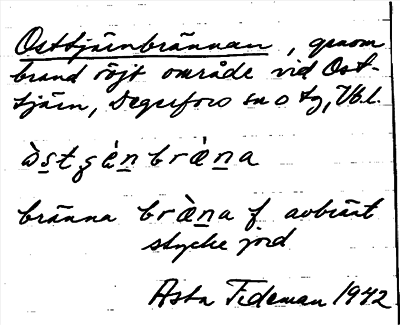 Osttjärnbrännan, genom
brand röjt område vid Ost-
tjärn, Degerfors sn o tg, Vb.l.
bränna bràna f avbränt
stycke jord
Asta Fedeman 1942